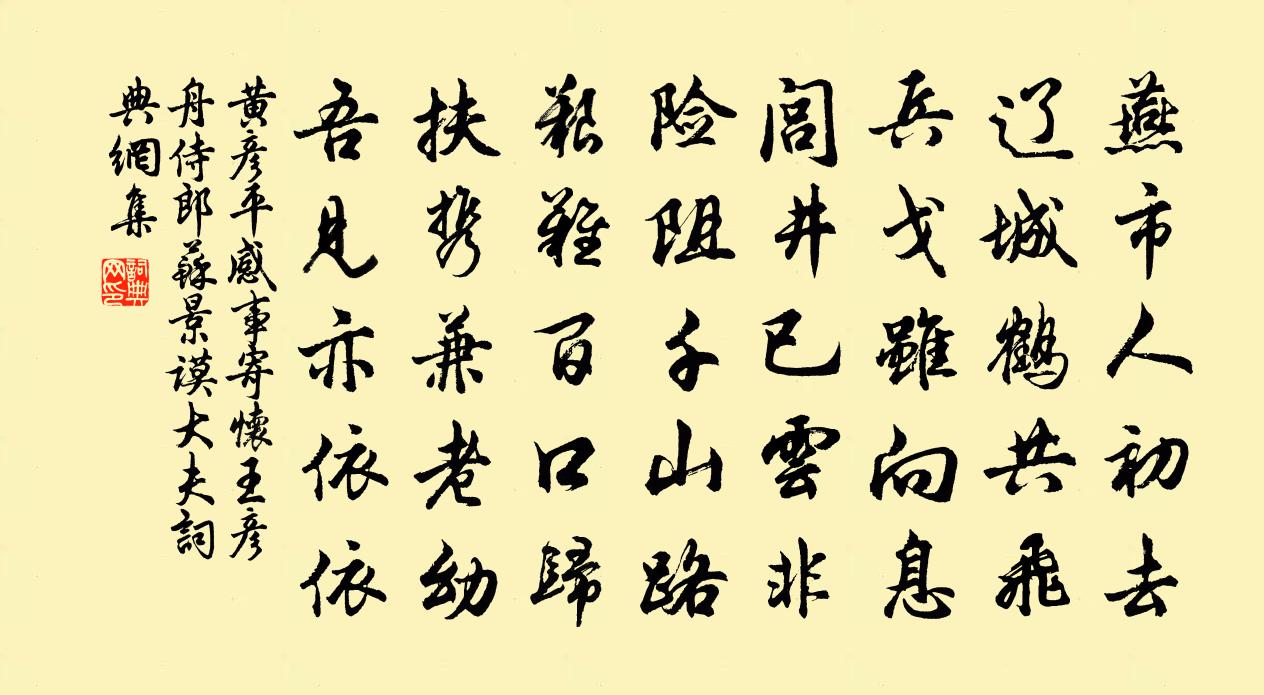 燕市人初去
辽城鹤共飛
兵戈雖向息
閭井已雲非
险阻千山路
艱難百口歸
扶携兼老幼
吾見亦依依
黄彦平感事寄懷王彦
舟侍郎蘇景謨大夫詞
典網集
詞典网印